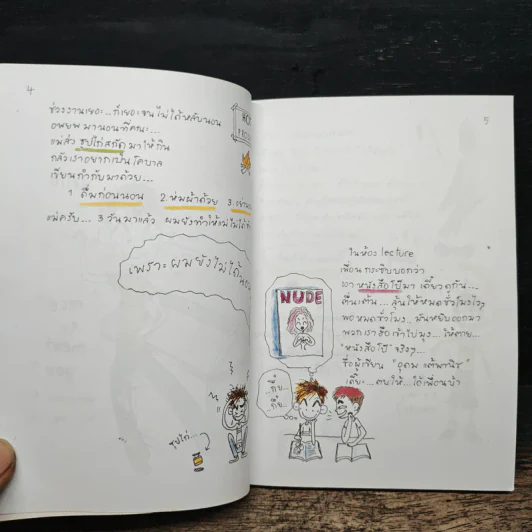 4
ช่วงงานเยอะ.. ก็เยอะจนไม่ได้หลับนอน
อพยพมานอนที่คณะ...
แม่ส่ง ซุปไก่สกัด มาให้กิน
กลัวเราอยากเป็นโคบาล
เขียนกำกับมาด้วย...
1. ดื่มก่อนนอน 2. ห่มผ้าด้วย 3.
แม่ครับ... 3 วันมาแล้ว ผมยังทำให้แม่ไม่ได้
เพราะผมยังไม่ได้นอน
ซุปไก่...
5
ในห้อง lecture
เพื่อนกระซิบบอกว่า
เอา หนังสือโป๊ มา เดี๋ยวดูกัน...
ตื่นเต้น... ลุ้นให้หมดชั่วโมงไวๆ
พอหมดชั่วโมง.. มันหยิบออกมา
พวกเรารีบเข้าไปมุง... ให้ตาย...
"หนังสือโป๊" จริงๆ...
ชื่อผู้เขียน "อุดม แต้พานิช"
เดี๊ยะ... ตบให้... ไอ้เพื่อนบ้า
NUDE